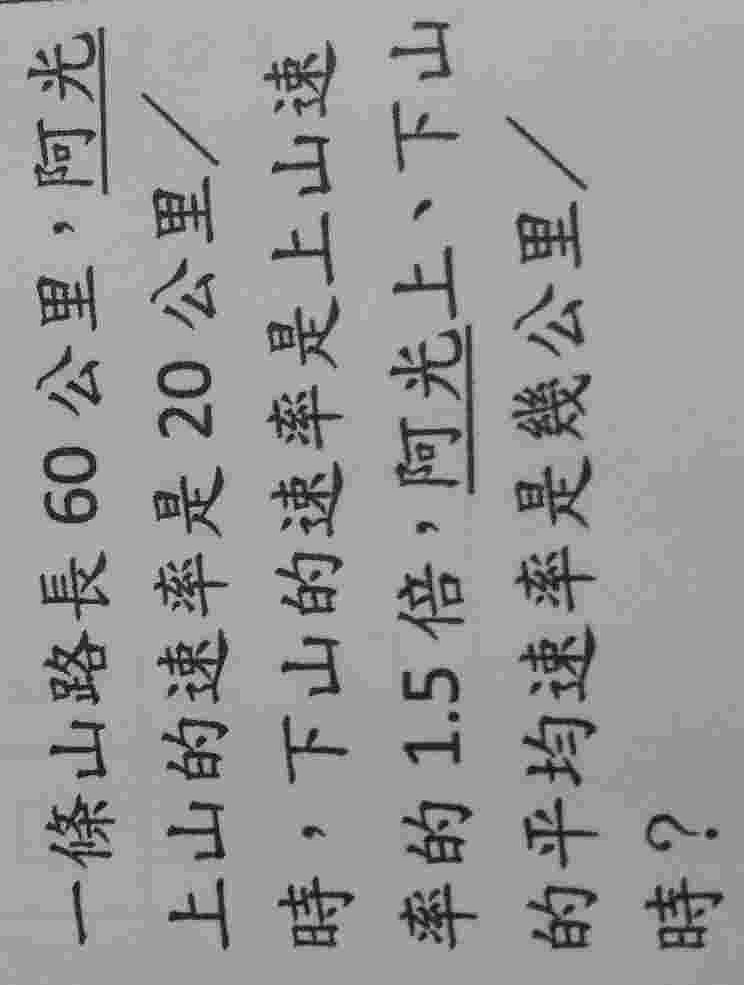 一條山路長 60 公里，阿光
上山的速率是 20 公里／
時，下山的速率是上山速
率的 1.5 倍，阿光上、下山
的平均速率是幾公里／
時？